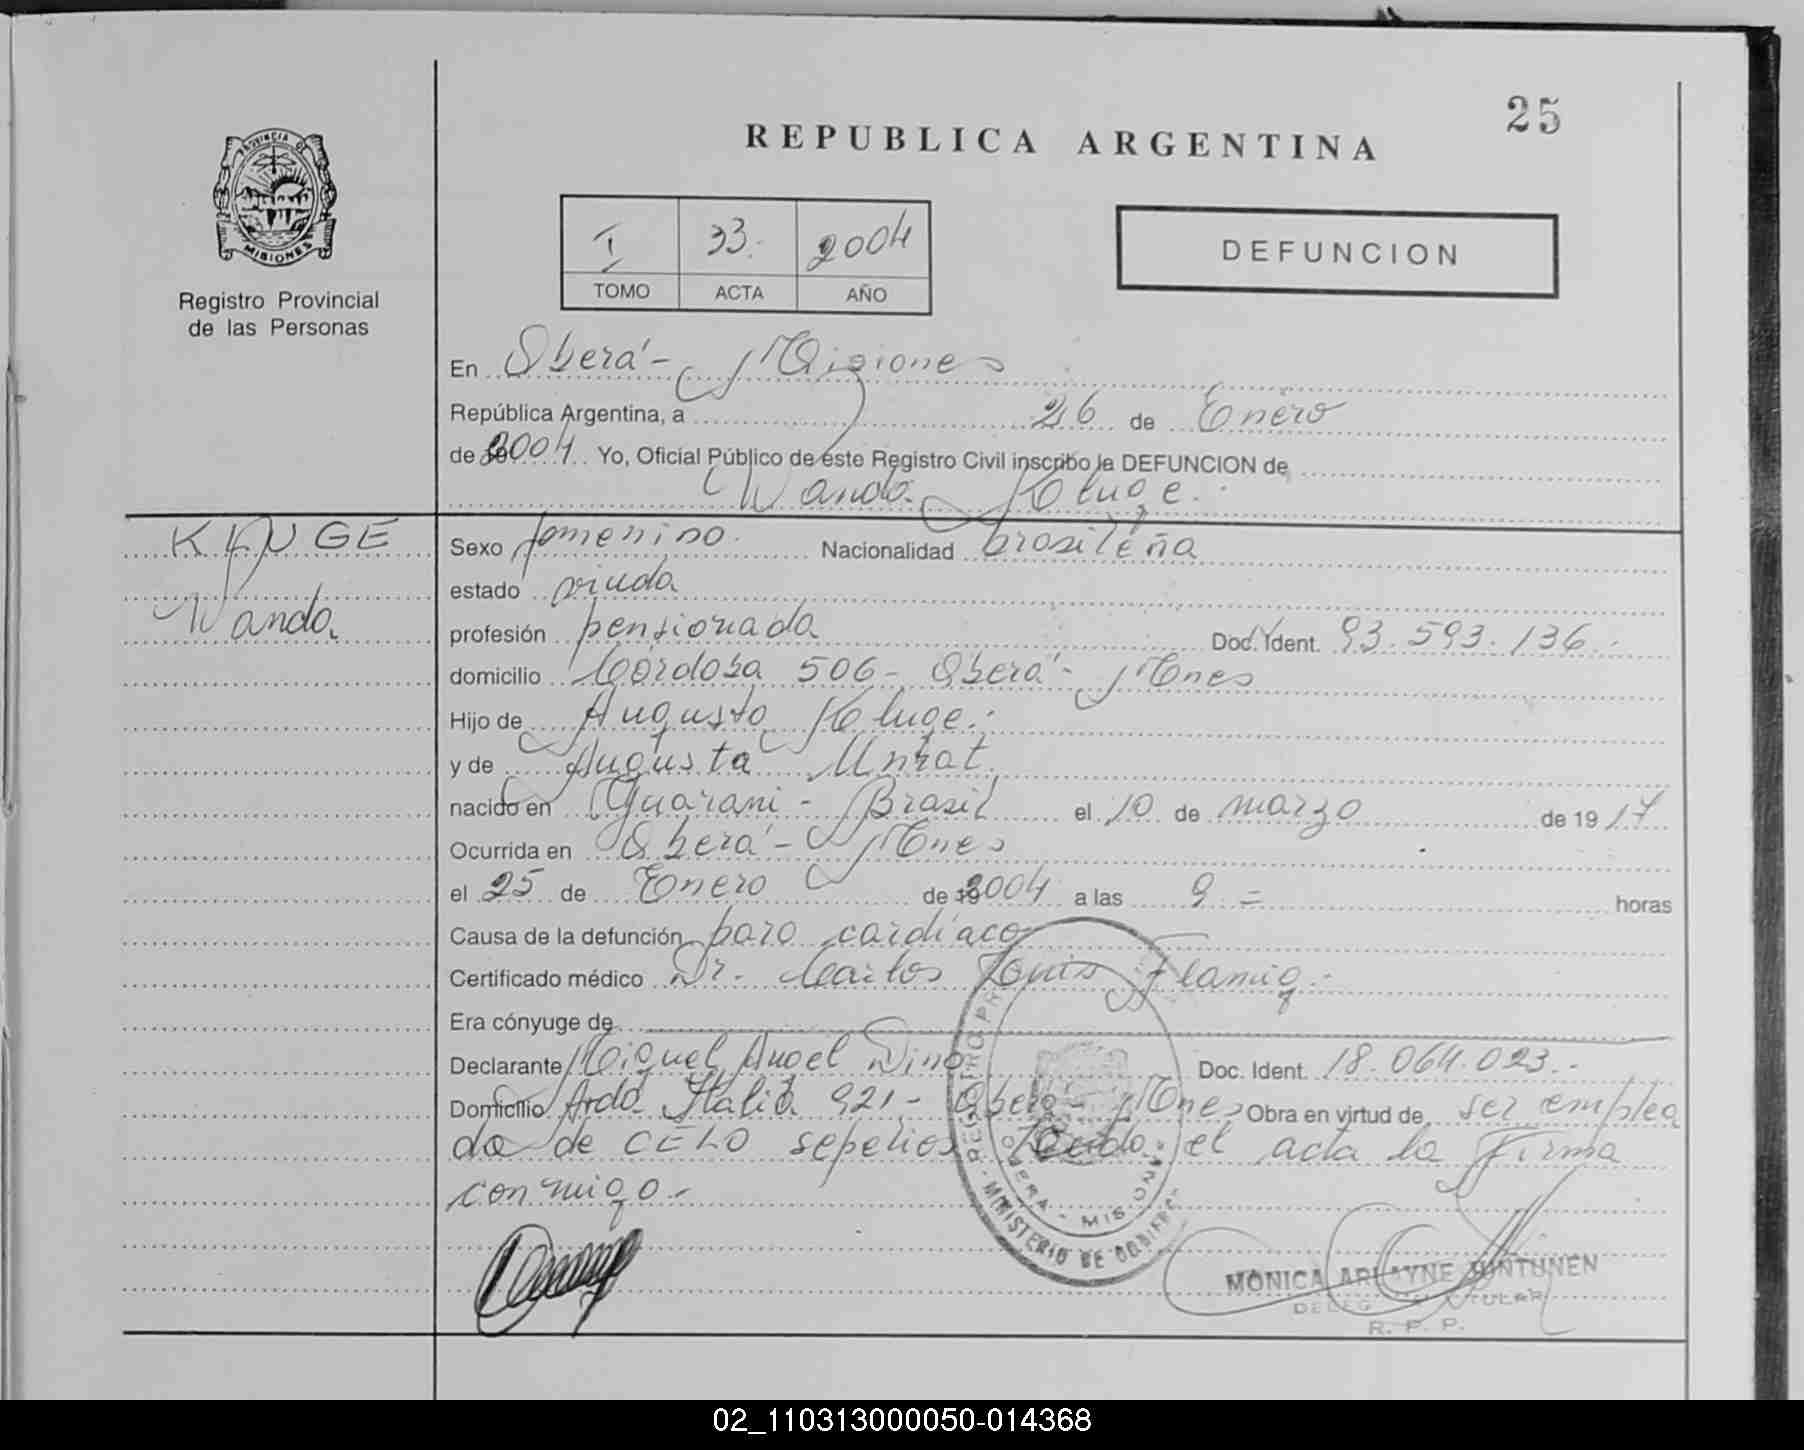 25
REPUBLICA ARGENTINA
PROVINCIA DE
MISIONES
Registro Provincial
de las Personas
I 33. 2004
TOMO ACTA AÑO
DEFUNCION
En Oberá - Misiones
República Argentina, a 26 de Enero
de 2004 Yo, Oficial Público de este Registro Civil inscribo la DEFUNCION de
Wanda Kluge.
KLUGE
Wanda
Sexo femenino. Nacionalidad brasileña
estado viuda
profesión pensionada Doc. Ident. 93.593.136.-
domicilio Córdoba 506 - Oberá - Mnes
Hijo de Augusto Kluge.-
y de Augusta
nacido en Guarani - Brasil el 10 de marzo de 1917
Ocurrida en Oberá - Mnes
el 25 de Enero de 2004 a las 9 = horas
Causa de la defunción paro cardíaco
Certificado médico Dr. Carlos Luis Flamig.-
Era cónyuge de
Declarante Miguel Angel Dino Doc. Ident. 18.064.023.-
Domicilio Avda. Italia 921 - Oberá - Mnes Obra en virtud de ser emplea
do de CELO sepelios Leída el acta la firma
conmigo.-
OBERA - MISIONES
MINISTERIO DE GOBIERNO
MONICA ARLAYNE JUNTUNEN
TITULAR
R. P. P.
02_110313000050-014368